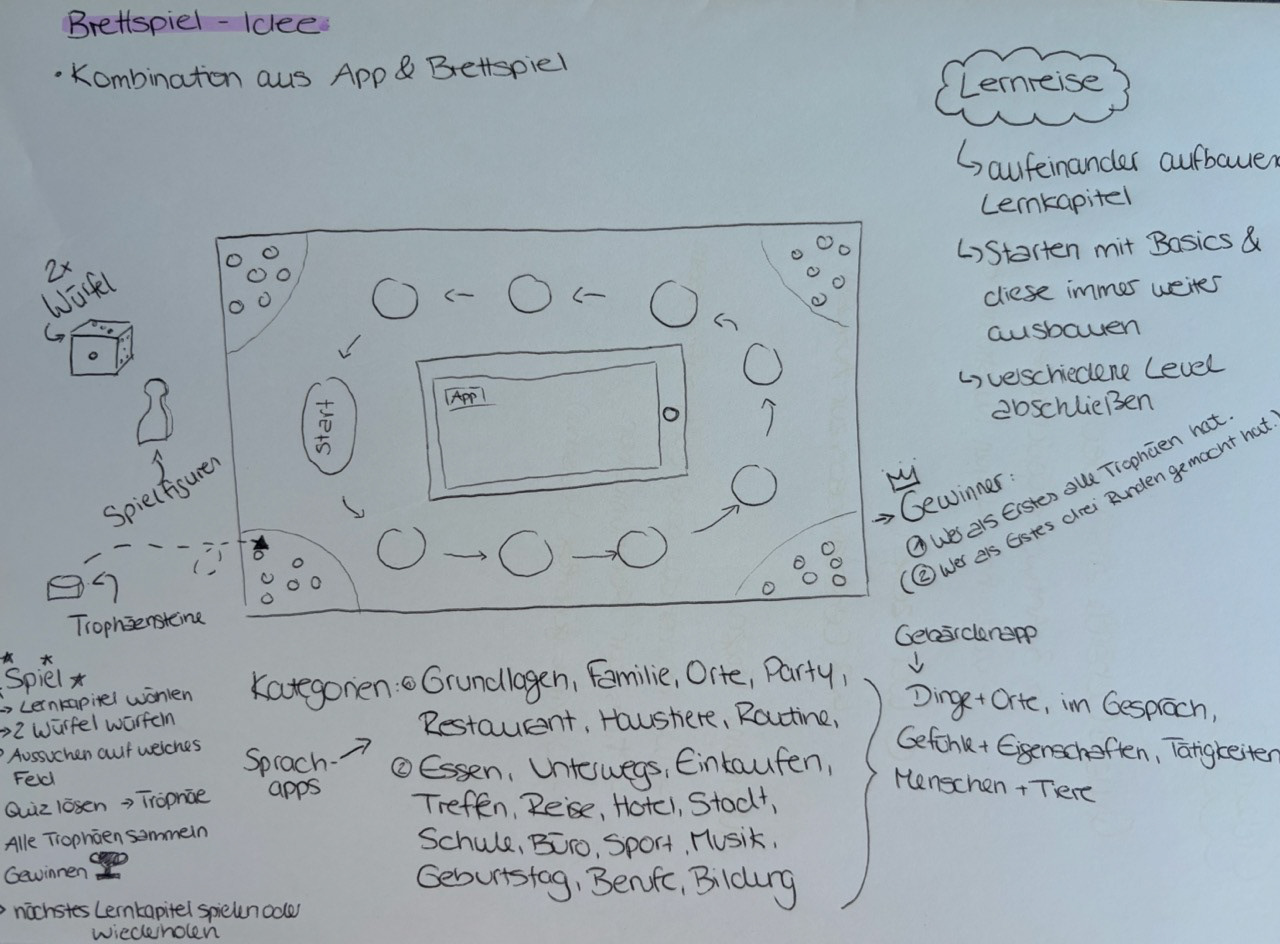 Brettspiel - Idee
• Kombination aus App & Brettspiel
Lernreise
↳ aufeinander aufbauen
Lernkapitel
↳ Starten mit Basics &
diese immer weiter
ausbauen
↳ verschiedene Level
abschließen
2x
Würfel
Spielfiguren
Trophäensteine
Start
App
→ Gewinner:
① Wer als Erstes alle Trophäen hat.
(② Wer als Erstes drei Runden gemacht hat.)
Spiel
→ Lernkapitel wählen
→ 2 Würfel würfeln
Aussuchen auf welches
Feld
Quiz lösen → Trophäe
Alle Trophäen sammeln
Gewinnen
nächstes Lernkapitel spielen oder
wiederholen
Kategorien: ① Grundlagen, Familie, Orte, Party,
Restaurant, Haustiere, Routine,
Sprach-
apps
② Essen, Unterwegs, Einkaufen,
Treffen, Reise, Hotel, Stadt,
Schule, Büro, Sport, Musik,
Geburtstag, Berufe, Bildung
Gebärdenapp
↓
Dinge + Orte, im Gespräch,
Gefühle + Eigenschaften, Tätigkeiten
Menschen + Tiere